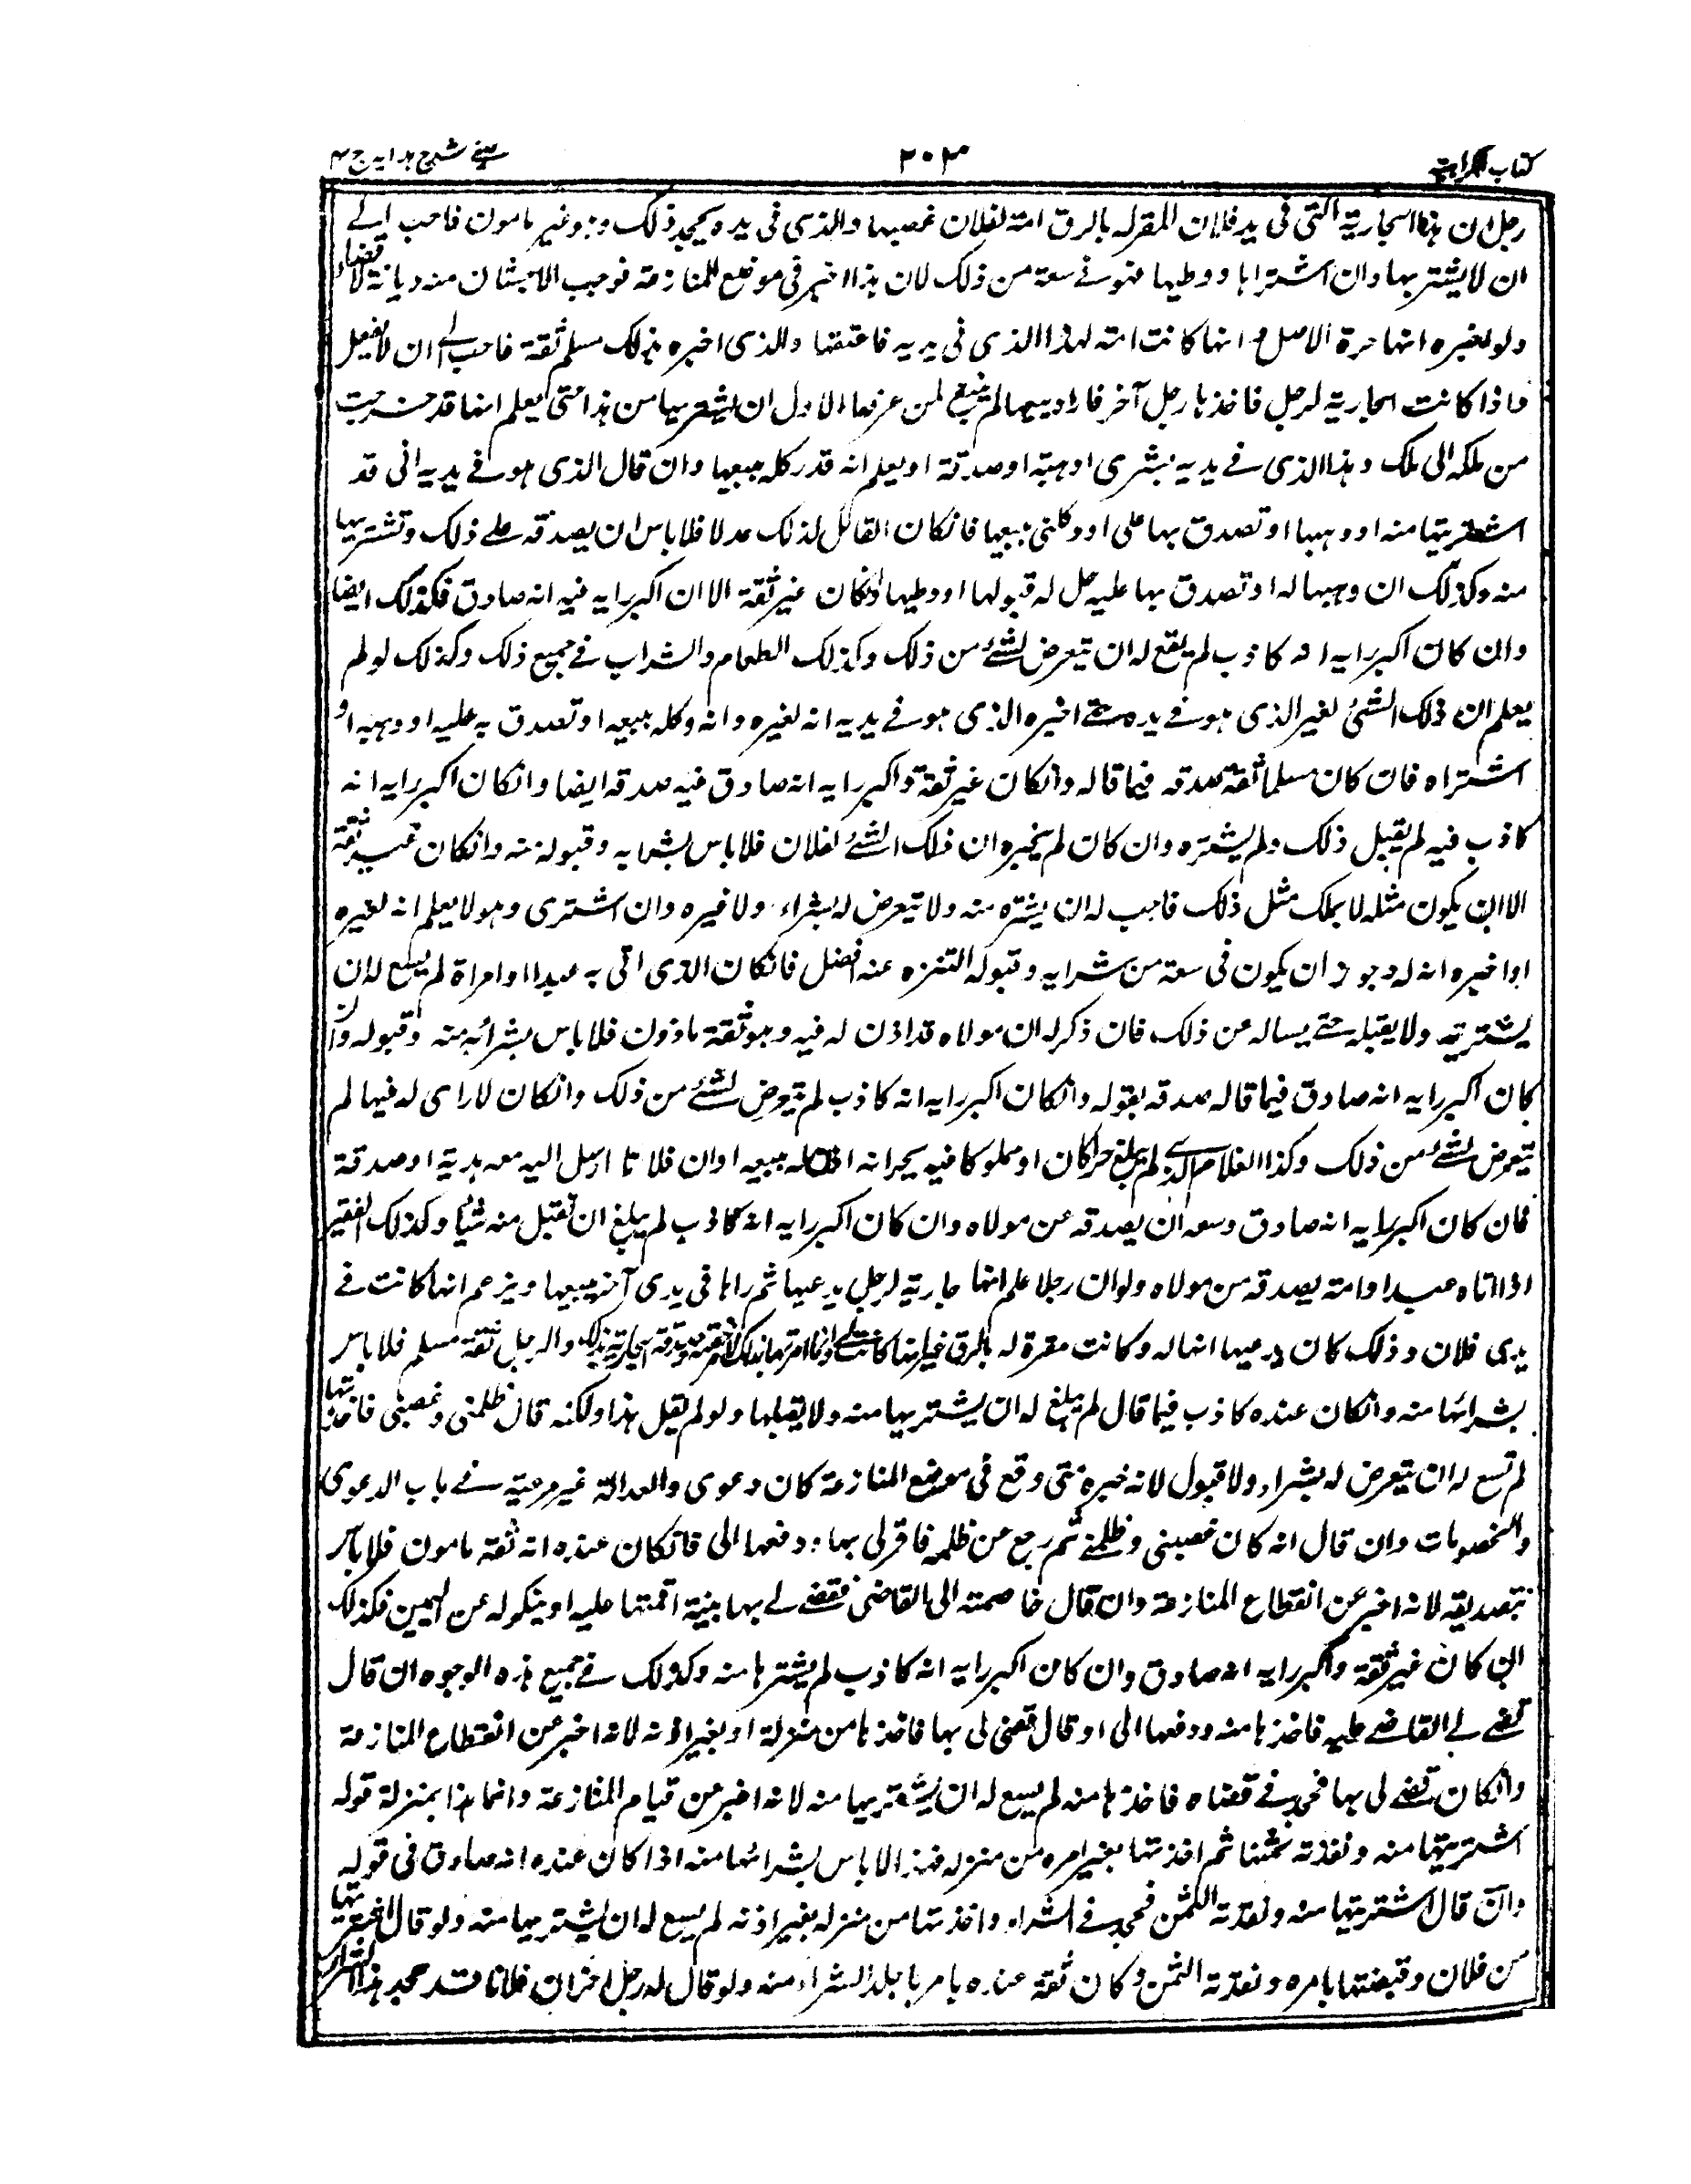 كتاب الكراهية
٢٠٣
عيني شرح هدايه ج ٤
رجل ان هذه الجارية التي في يد فلان المقر له بالرق امة لفلان غصبها والذي في يده يجحد ذلك وهو غير مامون فاحب الي
ان لا يشتريها وان اشتراها ووطيها فهو في سعة من ذلك لان هذا اخبر في موضع المنازعة فوجب الاجتناب منه ديانة لا قضاء
ولو اخبره انها حرة الاصل او انها كانت امة لهذا الذي في يديه فاعتقها والذي اخبره بذلك مسلم ثقة فاحب الي ان لا يفعل
واذا كانت الجارية لرجل فاخذها رجل آخر فاراد بيعها لم ينبغ لمن عرفها للاول ان يشتريها من هذا حتى يعلم انها قد خرجت
من ملكه الى ملك وهذا الذي في يديه بشرى او هبة او صدقة او يعلم انه قد وكله ببيعها وان قال الذي هو في يديه اني قد
اشتريتها منه او وهبها او تصدق بها علي او وكلني ببيعها فانكان القائل لذلك عدلا فلا باس ان يصدقه على ذلك وتشتريها
منه وكذلك ان وهبها له او تصدق بها عليه حل له قبولها او وطيها وانكان غير ثقة الا ان اكبر رايه فيه انه صادق فكذلك ايضا
وان كان اكبر رايه انه كاذب لم يقع له ان يتعرض لشئ من ذلك وكذلك الطعام والشراب في جميع ذلك وكذلك لو لم
يعلم ان ذلك الشئ لغير الذي هو في يده حتى اخبره الذي هو في يديه انه لغيره وانه وكله ببيعه او تصدق به عليه او وهبه او
اشتراه فان كان مسلما ثقة صدقه فيما قاله وانكان غير ثقة واكبر رايه انه صادق فيه صدقه ايضا وانكان اكبر رايه انه
كاذب فيه لم يقبل ذلك ولم يشتره وان كان لم يخبره ان ذلك الشئ لفلان فلا باس بشرايه وقبوله منه وانكان غير ثقة
الا ان يكون مثله لا يملك مثل ذلك فاحب له ان يشتره منه ولا يتعرض له بشراء ولا غيره وان اشترى وهو لا يعلم انه لغيره
او اخبره انه له وجوز ان يكون في سعة من شرايه وقبوله التنزه عنه افضل فانكان الذي اتى به عبدا او امراة لم يسع له ان
يشتريه ولا يقبله حتى يساله عن ذلك فان ذكر له ان مولاه قد اذن له فيه وهو ثقة ماذون فلا باس بشرائه منه وقبوله وان
كان اكبر رايه انه صادق فيما قاله صدقه بقوله وانكان اكبر رايه انه كاذب لم يتعرض لشئ من ذلك وانكان لا راى له فيها لم
يتعرض لشئ من ذلك وكذا الغلام الذي لم يبلغ حرا كان او مملوكا فيه يخبر انه اذن له ببيعه او ان فلانا ارسل اليه معه هدية او صدقة
فان كان اكبر رايه انه صادق وسعه ان يصدقه عن مولاه وان كان اكبر رايه انه كاذب لم يبلغ ان تقبل منه شيئا وكذلك الفقير
اذا اتاه عبدا او امته يصدقه من مولاه ولو ان رجلا علم انها جارية لرجل يدعيها ثم راها في يدى آخر يبيعها ويزعم انها كانت في
يدى فلان وذلك كان يدعيها انها له وكانت مقرة له بالرق غير انها كانت لي وانما امرتها بذلك لامر خفته وصدقته الجارية بذلك والرجل ثقة مسلم فلا باس
بشرائها منه وانكان عنده كاذب فيما قال لم يبلغ له ان يشتريها منه ولا يقبلها ولو لم يقل هذا ولكنه قال ظلمني وغصبني فاخذتها
لم تسع له ان يتعرض له بشراء ولا قبول لانه خبره متى وقع في موضع المنازعة كان دعوى والعدالة غير مرعية في باب الدعوى
والخصومات وان قال انه كان غصبني وظلمني ثم رجع عن ظلمه فاقر لي بها ودفعها الى فانكان عنده انه ثقة مامون فلا باس
بتصديقه لانه اخبر عن انقطاع المنازعة وان قال خاصمته الى القاضي فقضى لي بها ببينة اقمتها عليه او بنكوله عن اليمين فكذلك
ان كان غير ثقة واكبر رايه انه صادق وان كان اكبر رايه انه كاذب لم يشترها منه وكذلك في جميع هذه الوجوه ان قال
قضى لي القاضي عليه فاخذها منه ودفعها الى او قال قضى لي بها فاخذها من منزله او بغير اذنه لانه اخبر عن انقطاع المنازعة
وانكان قضى لي بها فجحد في قضاه فاخذها منه لم يسع له ان يشتريها منه لانه اخبر عن قيام المنازعة وانما هذا بمنزلة قوله
اشتريتها منه ونقدته ثمنها ثم اخذتها بغير امره من منزله فهذا لا باس بشرائها منه اذا كان عنده انه صادق في قوله
وان قال اشتريتها منه ونقدته الثمن فجحد في الشراء واخذتها من منزله بغير اذنه لم يسع له ان يشتريها منه ولو قال اشتريتها
من فلان وقبضتها بامره ونقدته الثمن وكان ثقة عنده يامر بابلد الشراء منه ولو قال له رجل اخر ان فلانا قد جحد هذا الشراء